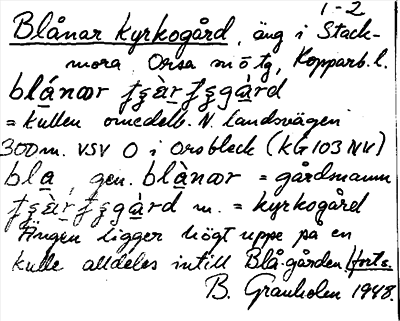 1-2
Blånar kyrkogård, äng i Stack-
mora, Orsa sn ö tg, Kopparb. l.
blánær
= kullen omedelb. N. landsvägen
300 m. VSV O i Orsbleck (KG 103 NV)
bla, gen. blànær = gårdsnamn
m. = kyrkogård
Ängen ligger högt uppe på en
kulle alldeles intill Blå-gården /forts.
B. Granholm 1948.